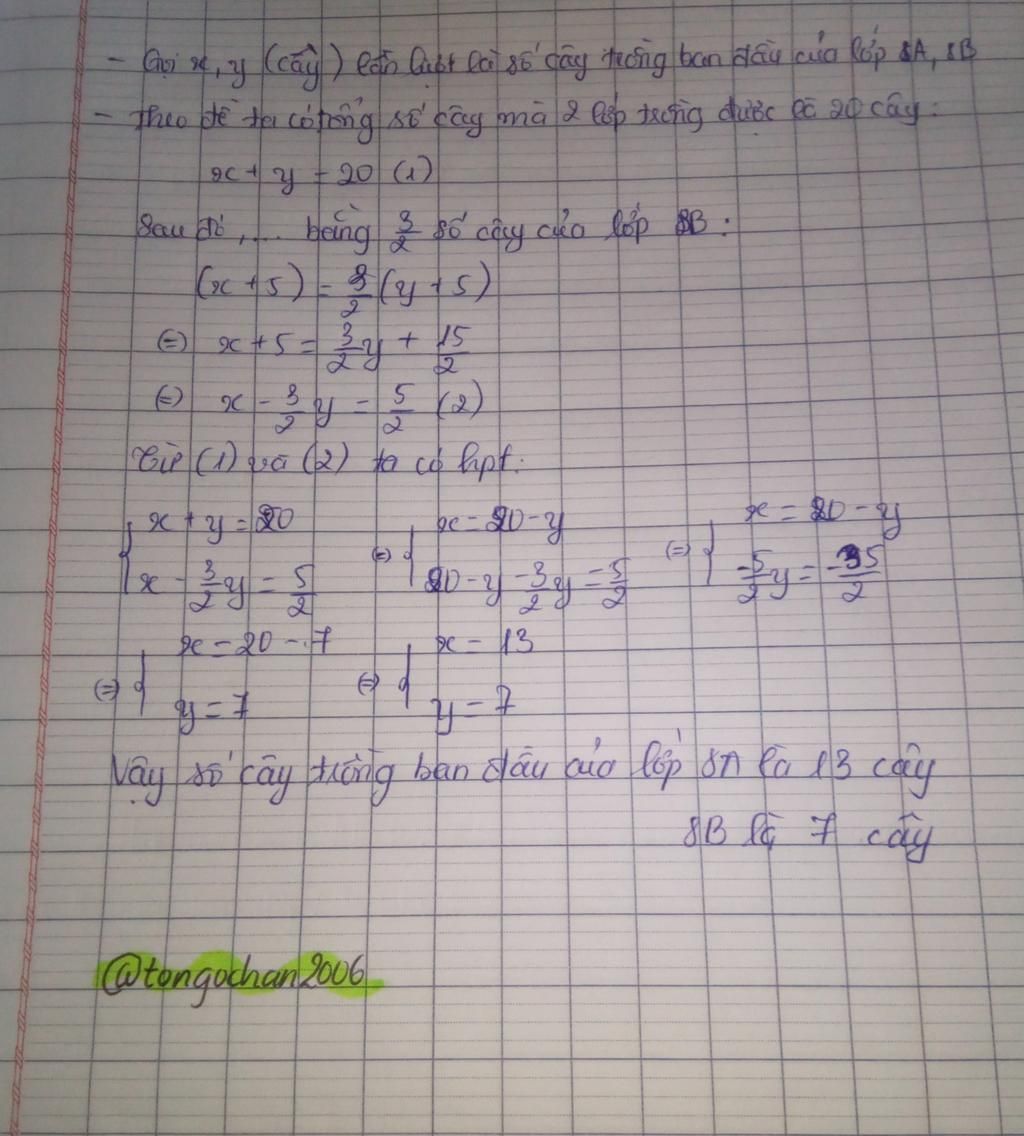 - Gọi x, y (cây) lần lượt là số cây trồng ban đầu của lớp 8A, 8B
- Theo đề ta có tổng số cây mà 2 lớp trồng được là 20 cây:
x + y = 20 (1)
Sau đó, .... bằng 3/2 số cây của lớp 8B:
(x + 5) = 3/2 (y + 5)
(=) x + 5 = 3/2 y + 15/2
(=) x - 3/2 y = 5/2 (2)
Từ (1) và (2) ta có hpt:
{ x + y = 20 (=) { x = 20 - y (=) { x = 20 - y
x - 3/2 y = 5/2 20 - y - 3/2 y = 5/2 -5/2 y = -35/2
(=) { x = 20 - 7 (=) { x = 13
y = 7 y = 7
Vậy số cây trồng ban đầu của lớp 8A là 13 cây
8B là 7 cây
@tongochan2006